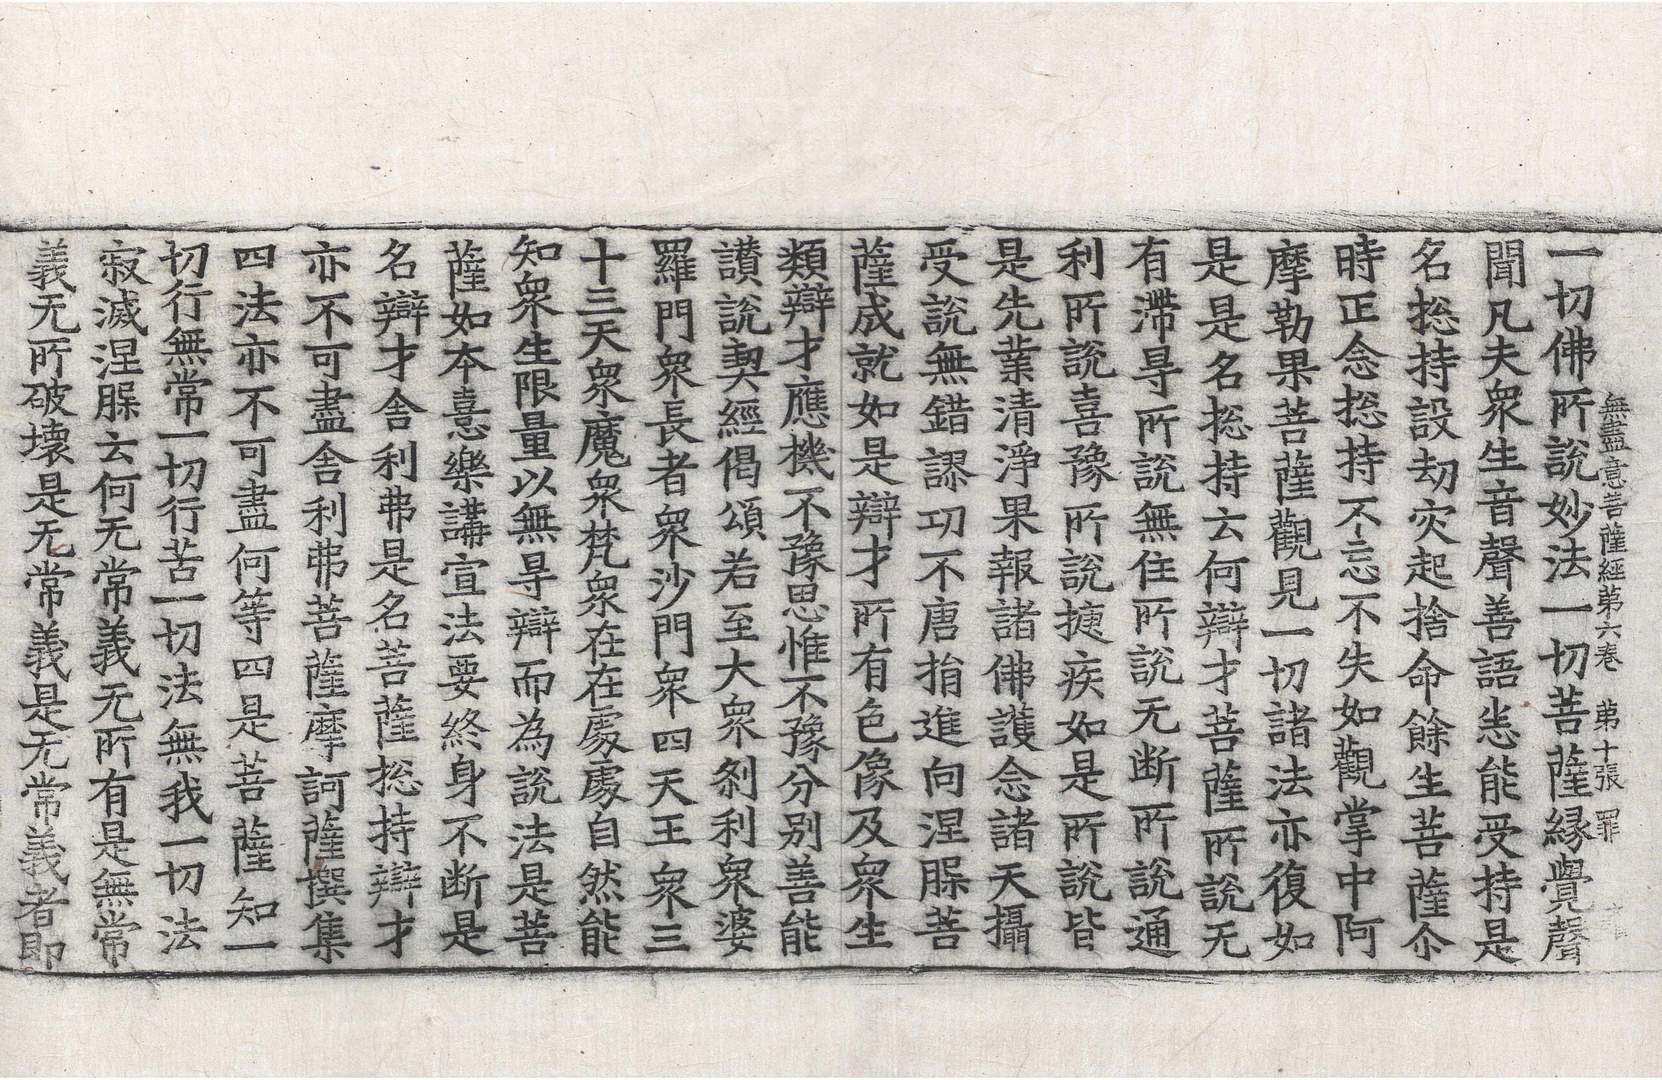 無盡意菩薩經第六卷 第十張 罪
一切佛所說妙法一切菩薩縁覺聲
聞凡夫衆生音聲善語悉能受持是
名捴持設劫灾起捨命餘生菩薩尒
時正念捴持不忘不失如觀掌中阿
摩勒果菩薩觀見一切諸法亦復如
是是名捴持云何辯才菩薩所說无
有滯㝵所說無住所說无断所說通
利所說喜豫所說捷疾如是所說皆
是先業清淨果報諸佛護念諸天攝
受說無錯謬功不唐捐進向涅槃菩
薩成就如是辯才所有色像及衆生
類辯才應機不豫思惟不豫分别善能
讃說契經偈頌若至大衆刹利衆婆
羅門衆長者衆沙門衆四天王衆三
十三天衆魔衆梵衆在在處處自然能
知衆生限量以無㝵辯而為說法是菩
薩如本憙樂講宣法要終身不断是
名辯才舍利弗是名菩薩捴持辯才
亦不可盡舍利弗菩薩摩訶薩撰集
四法亦不可盡何等四是菩薩知一
切行無常一切行苦一切法無我一切法
寂滅涅槃云何无常義无所有是無常
義无所破壞是无常義是无常義者即